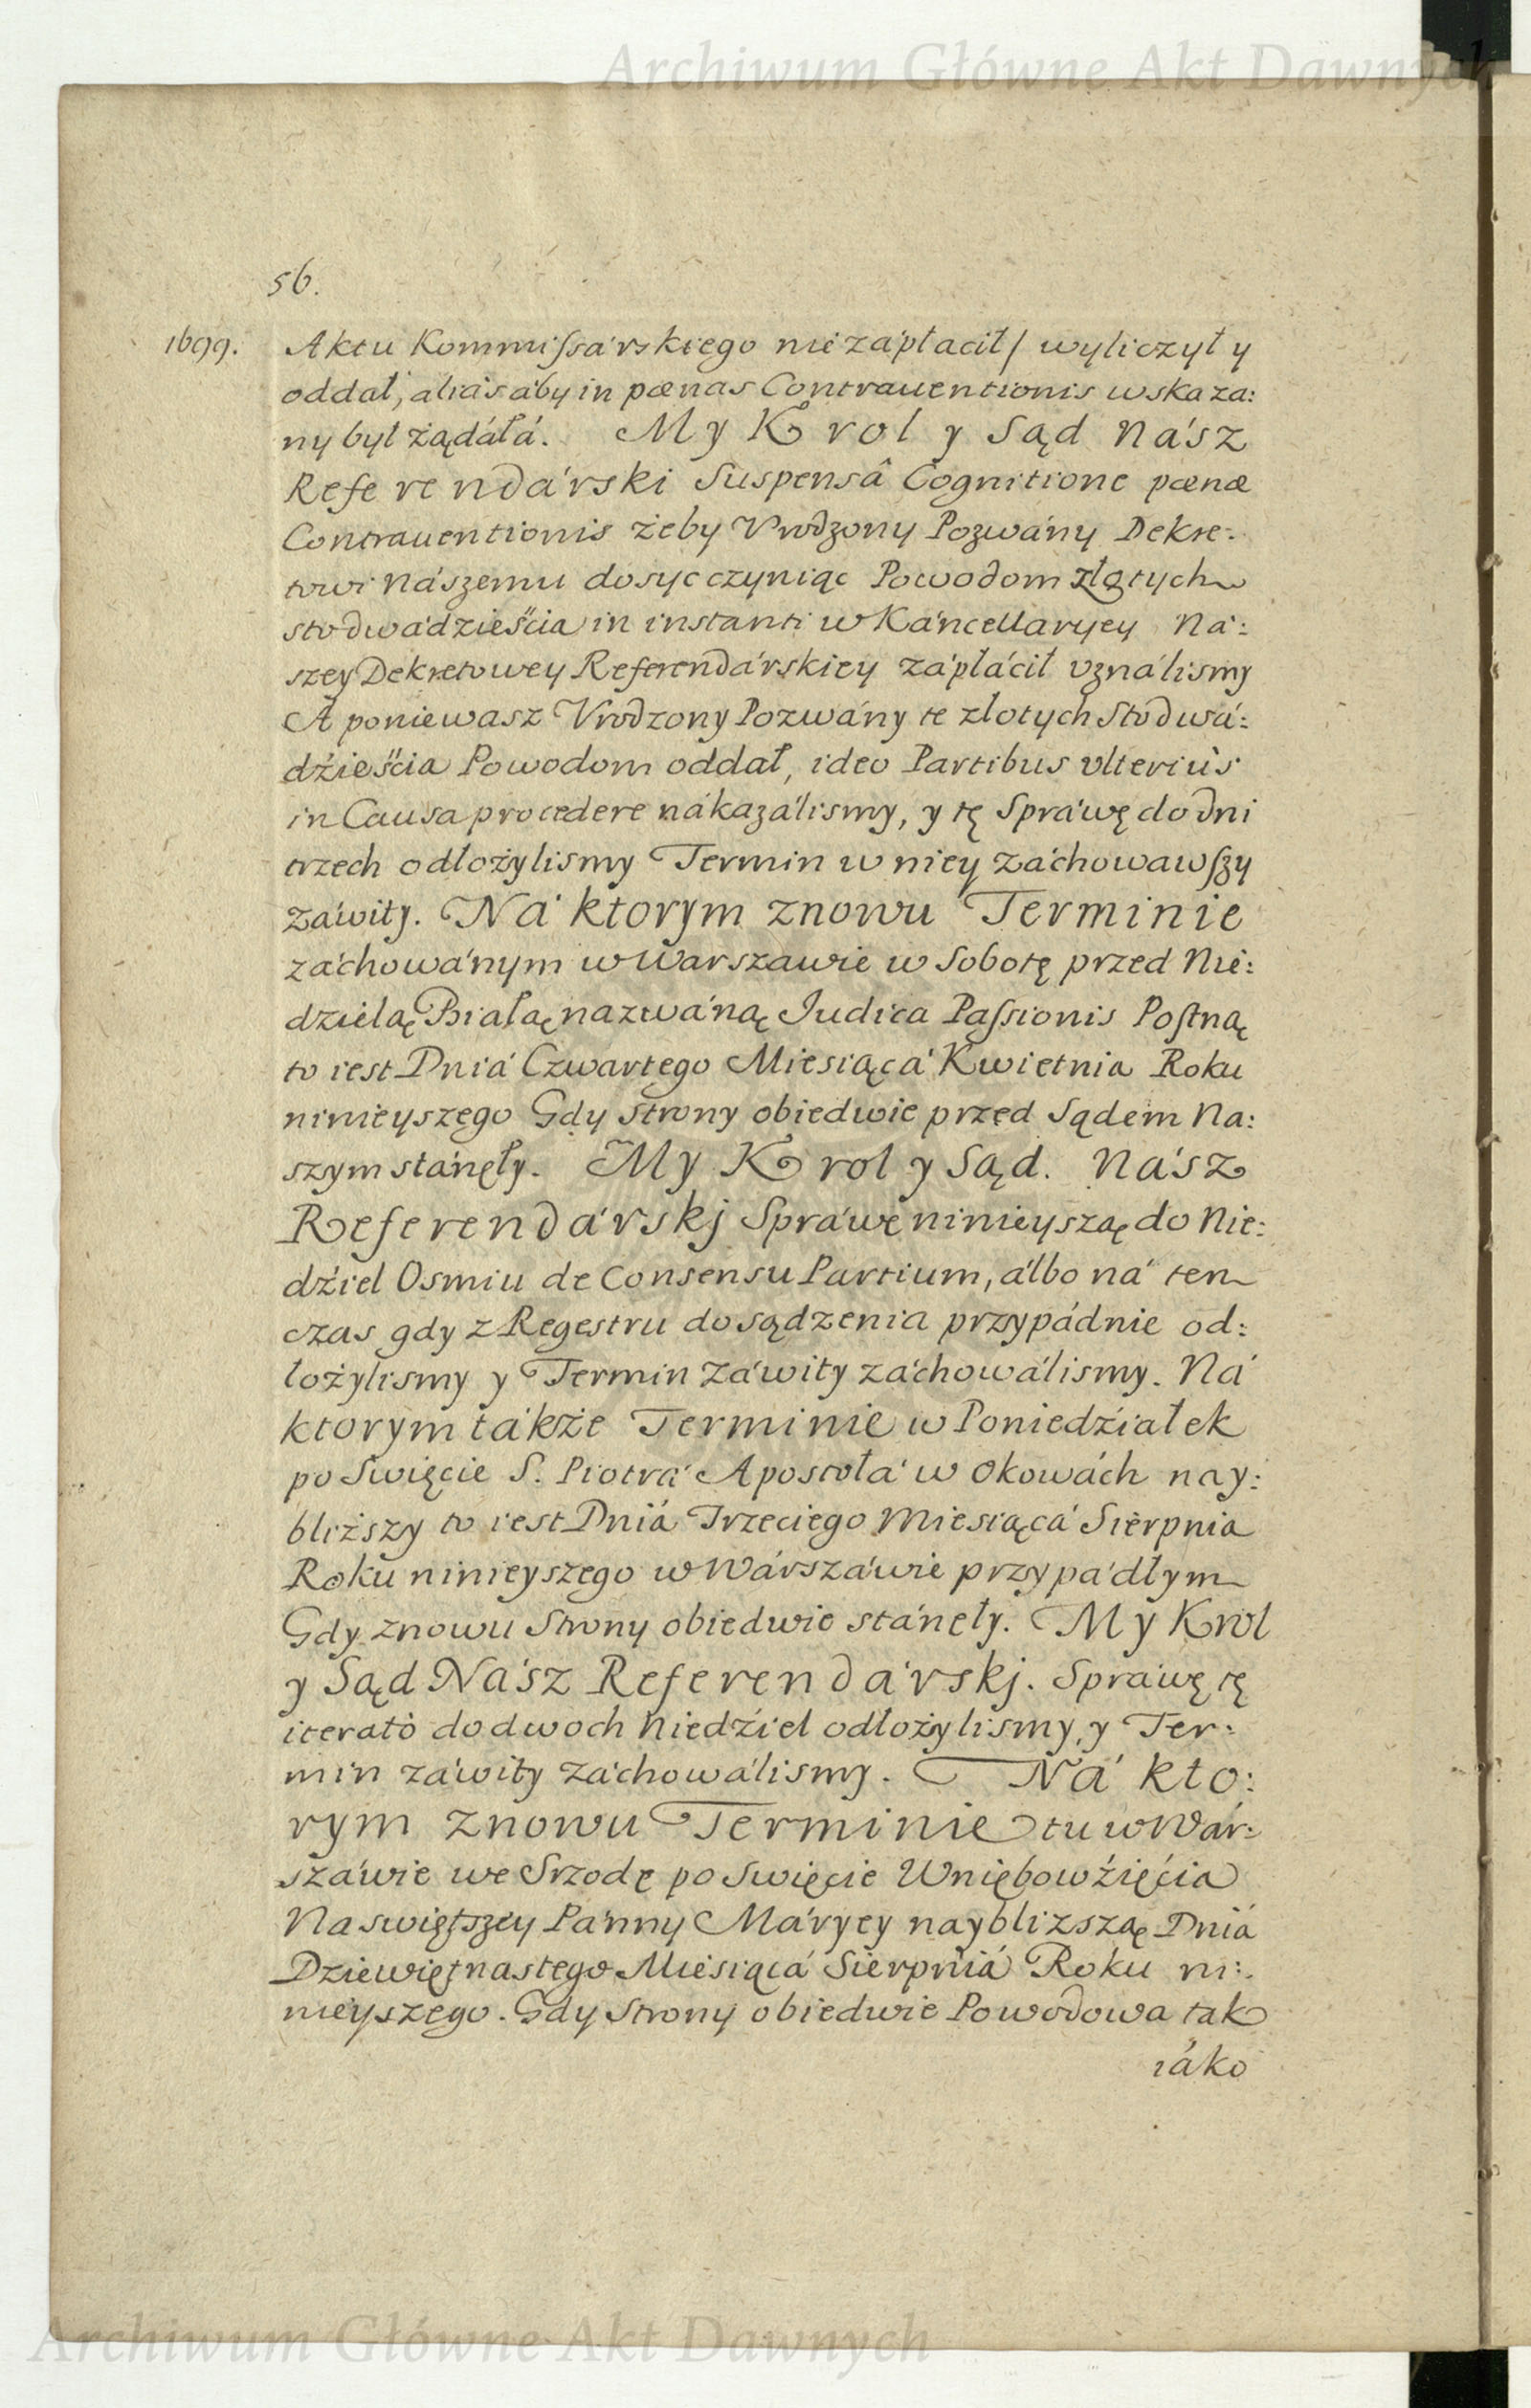 Archiwum Główne Akt Dawnych
56.
1699. Aktu Kommiſsárskiego nie zápłacił/ wyliczył y
oddał, aliàs aby in pœnas Contrauentionis wskaza:
ny był żądáłá. My Krol y Sąd Nász
Referendárski Suspensâ Cognitione pœnæ
Contrauentionis żeby Vrodzony Pozwány Dekre:
towi Nászemu dosyc czyniąc Powodom złotych
sto dwádzieścia in instanti w Káncellaryey Ná:
szey Dekretowey Referendárskiey zápłácił vználismy
A poniewasz Vrodzony Pozwány te złotych Sto dwá:
dźieścia Powodom oddał, ideo Partibus vlteriùs
in Causa procedere nákazálismy, y tę Spráwę do dni
trzech odłożylismy Termin w niey záchowawſzy
záwity. Ná ktorym znowu Terminie
záchowánym w Warszawie w Sobotę przed Nie:
dzielą Białą nazwáną Iudica Paſsionis Poſtną
to iest Dniá Czwartego Miesiącá Kwietnia Roku
ninieyszego Gdy Strony obiedwie przed Sądem Na:
szym stánęły. My Krol y Sąd. Nász
Referendárskj Spráwę ninieyszą do Nie:
dźiel Osmiu de Consensu Partium, álbo ná ten
czas gdy z Regestru do sądzenia przypádnie od:
łożylismy y Termin záwity záchowálismy. Ná
ktorym tákże Terminie w Poniedźiałek
po Swięcie S. Piotrá Apostołá w Okowách nay:
bliższy to iest Dniá Trzeciego Miesiącá Sierpnia
Roku ninieyszego w Wárszáwie przypádłym
Gdy znowu Strony obiedwie stánęły. My Krol
y Sąd Nász Referendárskj. Spráwę tę
iteratò do dwoch Niedźiel odłożylismy, y Ter:
min záwity záchowálismy. Ná kto:
rym znowu Terminie tu w Wár:
száwie we Srzodę po Swięcie Wniębowźięćia
Naswiętszey Pánny Máryey naybliższą Dniá
Dziewiętnastego Miesiącá Sierpniá Roku ni:
nieyszego. Gdy Strony obiedwie Powodowa tak
iáko
Archiwum Główne Akt Dawnych